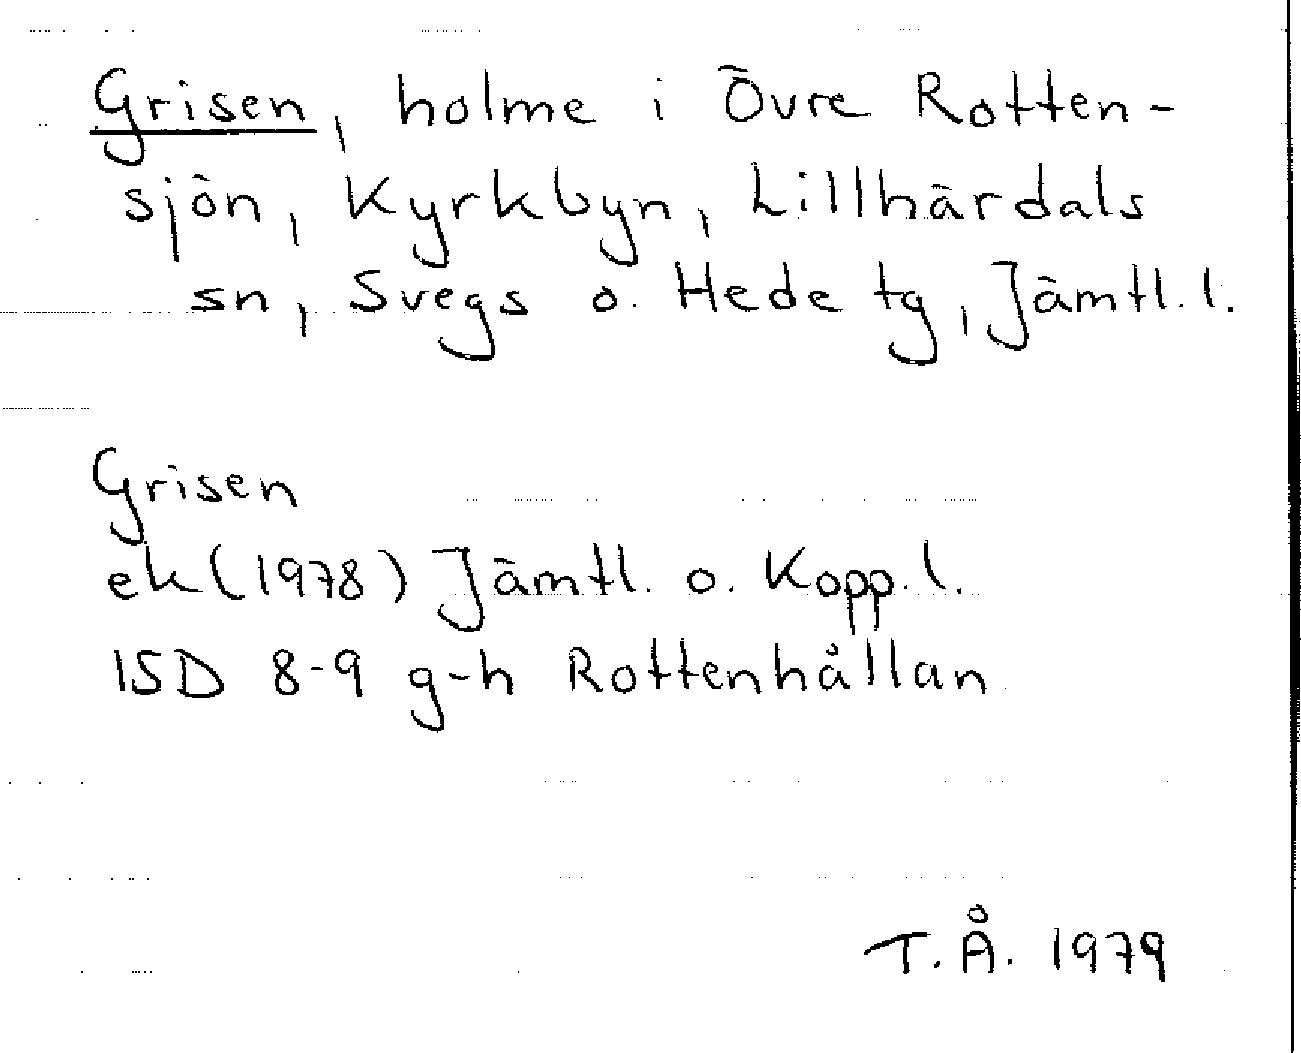 Grisen, holme i Övre Rotten-
sjön, Kyrkbyn, Lillhärdals
sn, Svegs o. Hede tg, Jämtl. l.
Grisen
ek (1978) Jämtl. o. Kopp. l.
15D 8-9 g-h Rottenhållan
T.Å. 1979